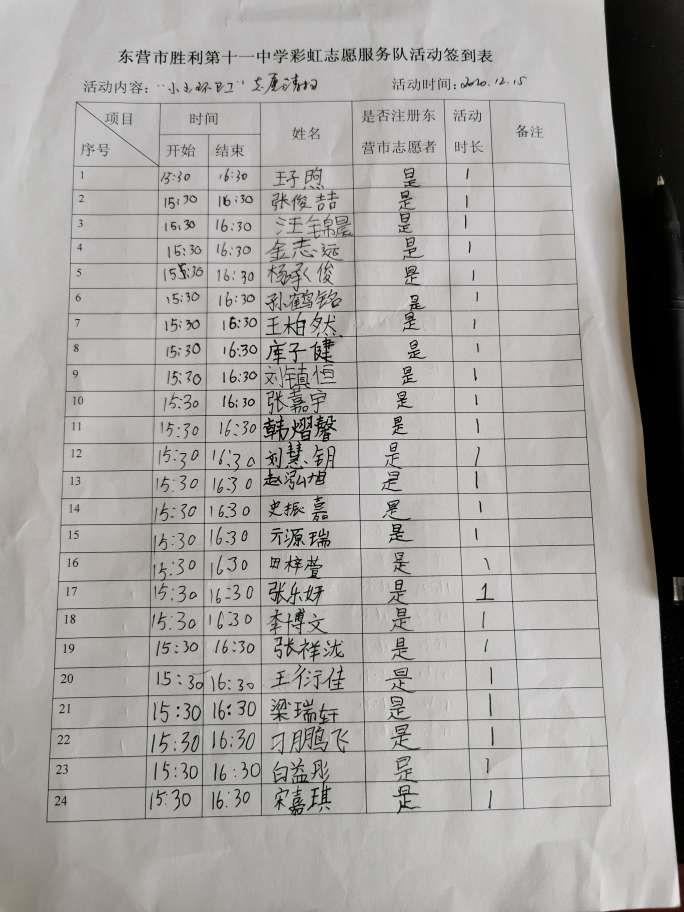 东营市胜利第十一中学彩虹志愿服务队活动签到表
活动内容：“小手环卫”志愿清扫 活动时间：2020.12.15
项目 时间 姓名 是否注册东营市志愿者 活动时长 备注
序号 开始 结束
1 15:30 16:30 王子煦 是 1
2 15:30 16:30 张俊喆 是 1
3 15:30 16:30 汪锦晨 是 1
4 15:30 16:30 金志远 是 1
5 155:30 16:30 杨承俊 是 1
6 15:30 16:30 孙鹤铭 是 1
7 15:30 16:30 王柏然 是 1
8 15:30 16:30 库子健 是 1
9 15:30 16:30 刘镇恒 是 1
10 15:30 16:30 张嘉宇 是 1
11 15:30 16:30 韩熠馨 是 1
12 15:30 16:30 刘慧钥 是 1
13 15:30 16:30 赵泓旭 是 1
14 15:30 1630 史振嘉 是 1
15 15:30 16:30 亓源瑞 是 1
16 15:30 1630 田梓萱 是 1
17 15:30 16:30 张乐妍 是 1
18 15:30 16:30 李博文 是 1
19 15:30 16:30 张祥泷 是 1
20 15:30 16:30 王衍佳 是 1
21 15:30 16:30 梁瑞轩 是 1
22 15:30 16:30 刁朋鹏飞 是 1
23 15:30 16:30 白益彤 是 1
24 15:30 16:30 宋嘉琪 是 1